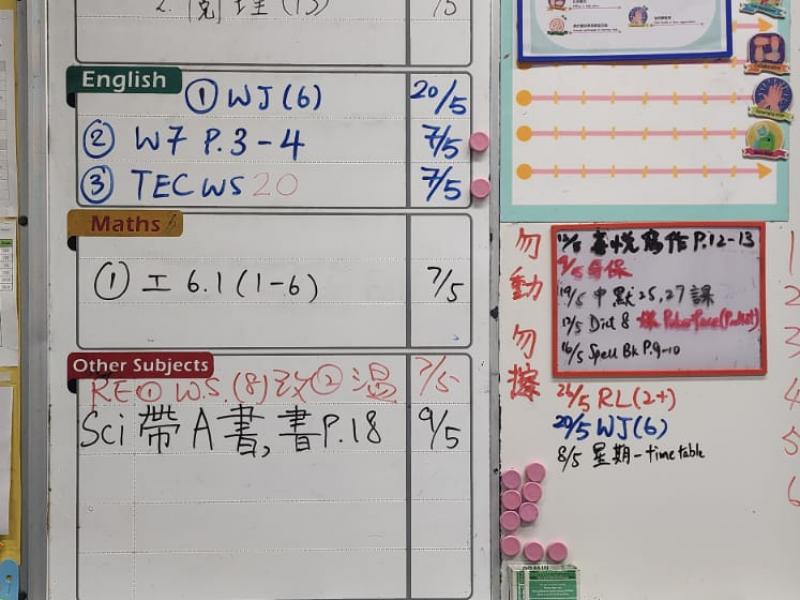 2. 閱理(13) 7/5
English
① WJ(6) 20/5
② W7 P.3-4 7/5
③ TEC WS 20 7/5
Maths
① 工 6.1(1-6) 7/5
Other Subjects
RE ① W.S.(8)改 ② 温 7/5
Sci 帶 A 書, 書 P.18 9/5
勿動 勿擦
喜悅寫作 P.12-13
9/5
19/5 中默 25, 27 課
Dict 8
16/5 Spell Bk P.9-10
RL(2+)
20/5 WJ(6)
8/5 星期一 timetable
1
2
3
4
5
6